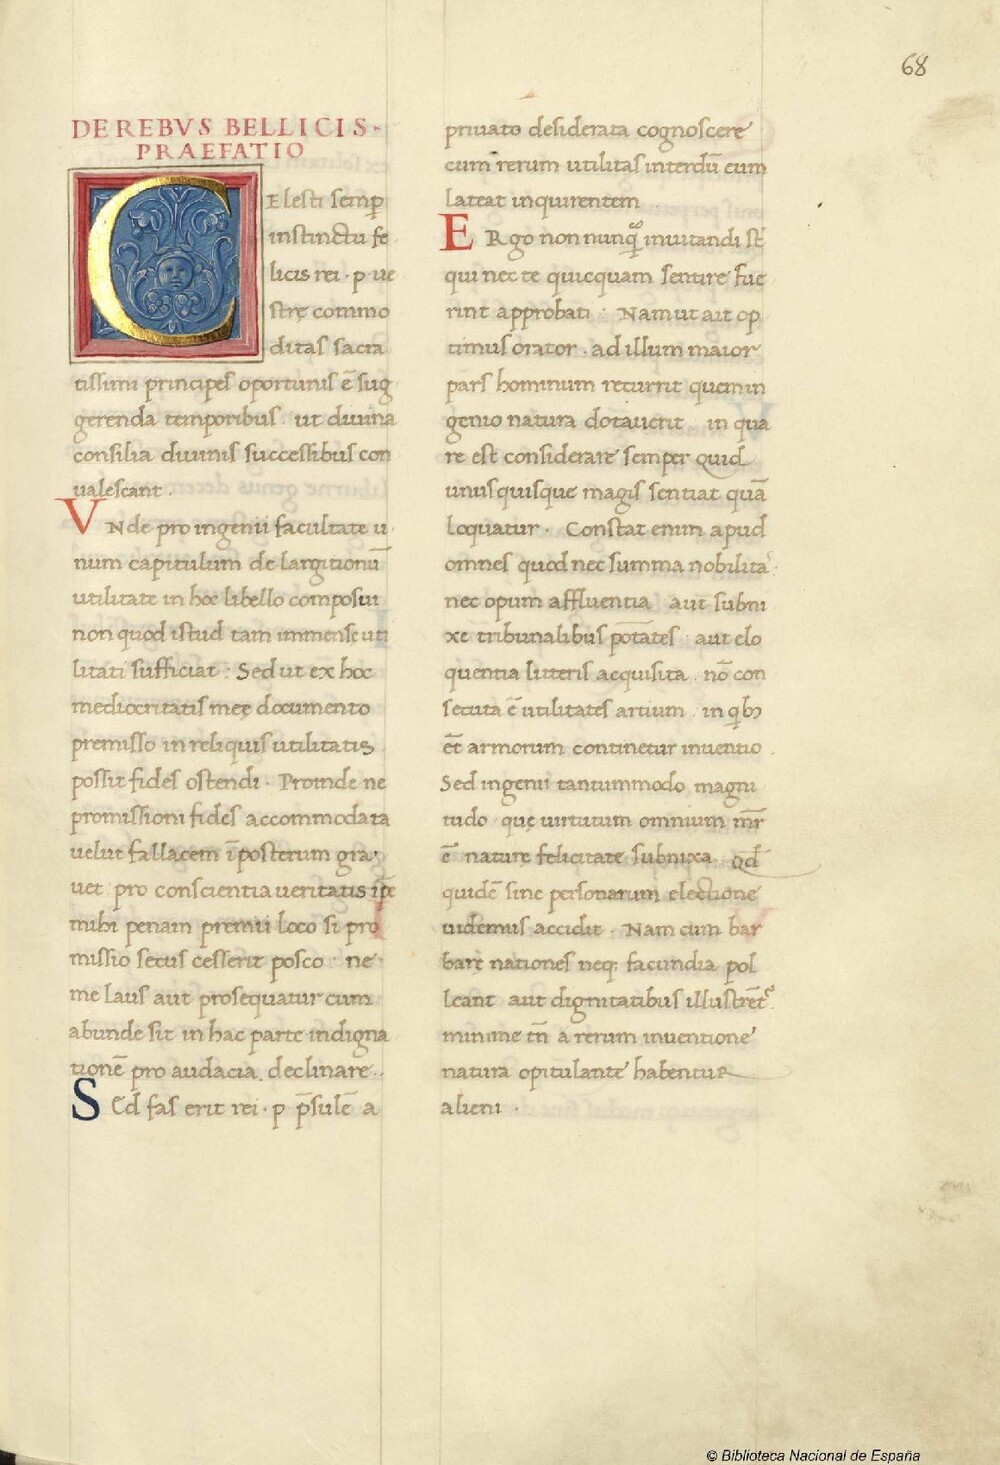 68
DE REBVS BELLICIS·
PRAEFATIO
CElesti semp̱
instinctu fe
licis rei · p · ue
strę commo
ditas sacra
tissimi principes oportunis ē sug
gerenda temporibus . ut diuina
consilia diuinis successibus con
ualescant .
VNde pro ingenii facultate u·
num capitulum de largitionū
utilitate in hoc libello composui
non quod istud tam immense uti
litati sufficiat : Sed ut ex hoc
mediocritatis meę documento
premisso in reliquis utilitatis
possit fides ostendi · Proinde ne
promissioni fides accommodata
uelut fallacem īposterum gra·
uet . pro conscientia ueritatis ip̄e
mihi penam premii loco si pro
missio secus cesserit posco · ne·
me laus aut prosequatur cum
abunde sit in hac parte indigna
tionē pro audacia . declinare ..
SEd fas erit rei · p p̄sulē a
priuato desiderata cognoscere
cum rerum utilitas interdū eum
lateat inquirentem
ERgo non nunq̃ inuitandi st̄
qui nec te quicquam sentire fue
rint approbati : Nam ut ait op
timus orator . ad illum maior
pars hominum recurrit quem in
genio natura dotauerit . in qua
re est considerare semper quid
unusquisque magis sentiat quā
loquatur · Constat enim apud
omnes quod nec summa nobilita·
nec opum affluentia aut subni
xe tribunalibus pōtates · aut elo
quentia litteris acquisita . nō con
secuta ē utilitates artium . in qib3
et̄ armorum continetur inuentio .
Sed ingenii tantummodo magni
tudo que uirtutum omnium mr̄
ē nature felicitate subnixa . Qd̄
quidē sine personarum electione
uidemus accidit · Nam cum bar
barę nationes neq; facundia pol
leant aut dignitatibus illustrēt᷑
minime tn̄ a rerum inuentione
natura opitulante habentur
alieni ·
© Biblioteca Nacional de España